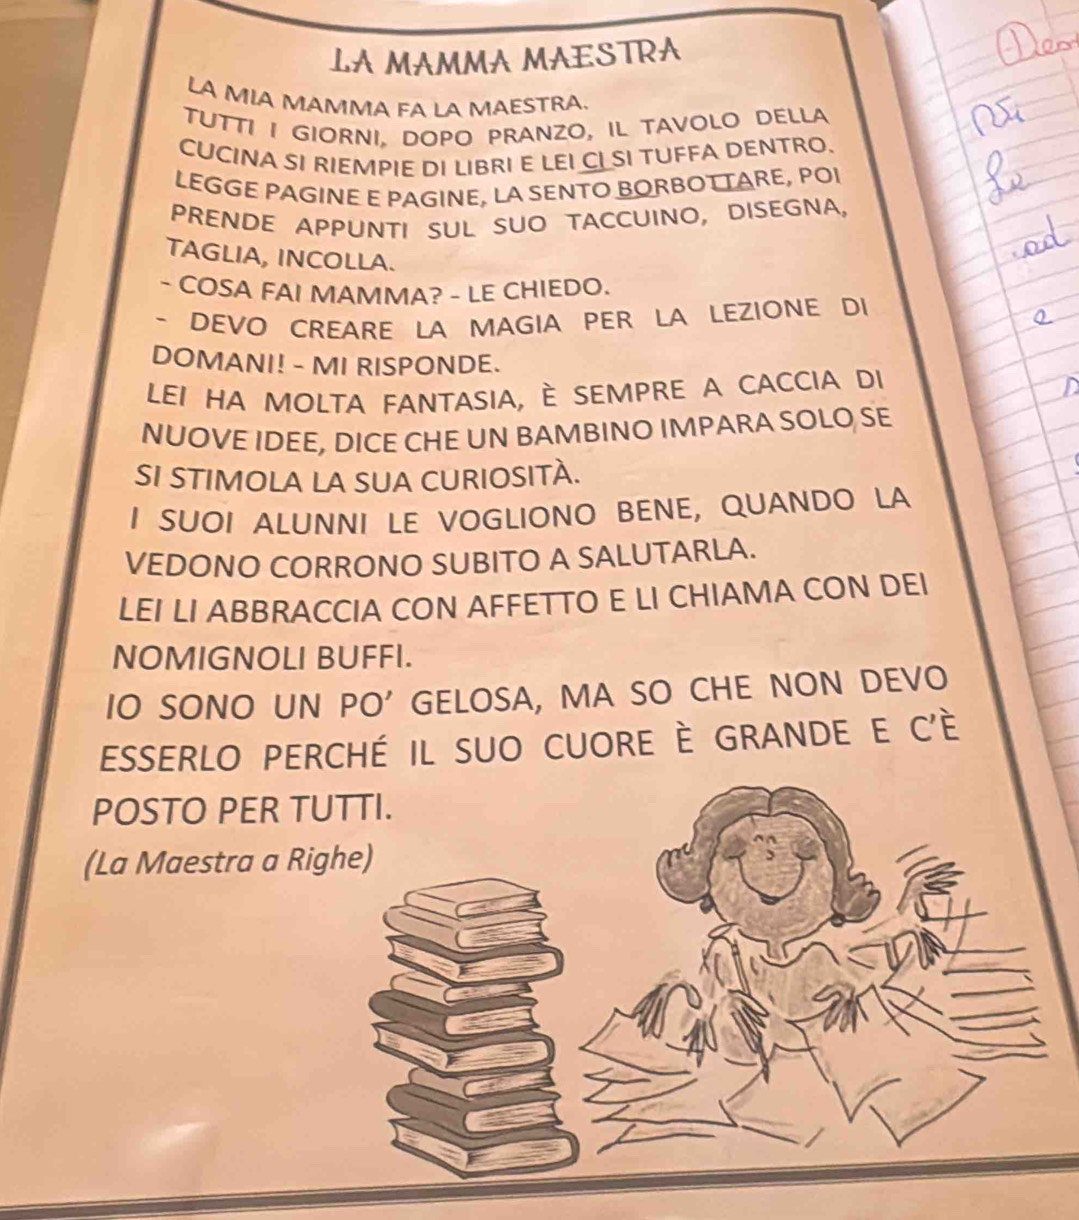 LA MAMMA MAESTRA
LA MIA MAMMA FA LA MAESTRA.
TUTTI I GIORNI, DOPO PRANZO, IL TAVOLO DELLA
CUCINA SI RIEMPIE DI LIBRI E LEI CI SI TUFFA DENTRO.
LEGGE PAGINE E PAGINE, LA SENTO BORBOTTARE, POI
PRENDE APPUNTI SUL SUO TACCUINO, DISEGNA,
TAGLIA, INCOLLA.
- COSA FAI MAMMA? - LE CHIEDO.
- DEVO CREARE LA MAGIA PER LA LEZIONE DI
DOMANI! - MI RISPONDE.
LEI HA MOLTA FANTASIA, È SEMPRE A CACCIA DI
NUOVE IDEE, DICE CHE UN BAMBINO IMPARA SOLO SE
SI STIMOLA LA SUA CURIOSITÀ.
I SUOI ALUNNI LE VOGLIONO BENE, QUANDO LA
VEDONO CORRONO SUBITO A SALUTARLA.
LEI LI ABBRACCIA CON AFFETTO E LI CHIAMA CON DEI
NOMIGNOLI BUFFI.
IO SONO UN PO' GELOSA, MA SO CHE NON DEVO
ESSERLO PERCHÉ IL SUO CUORE È GRANDE E C'È
POSTO PER TUTTI.
(La Maestra a Righe)